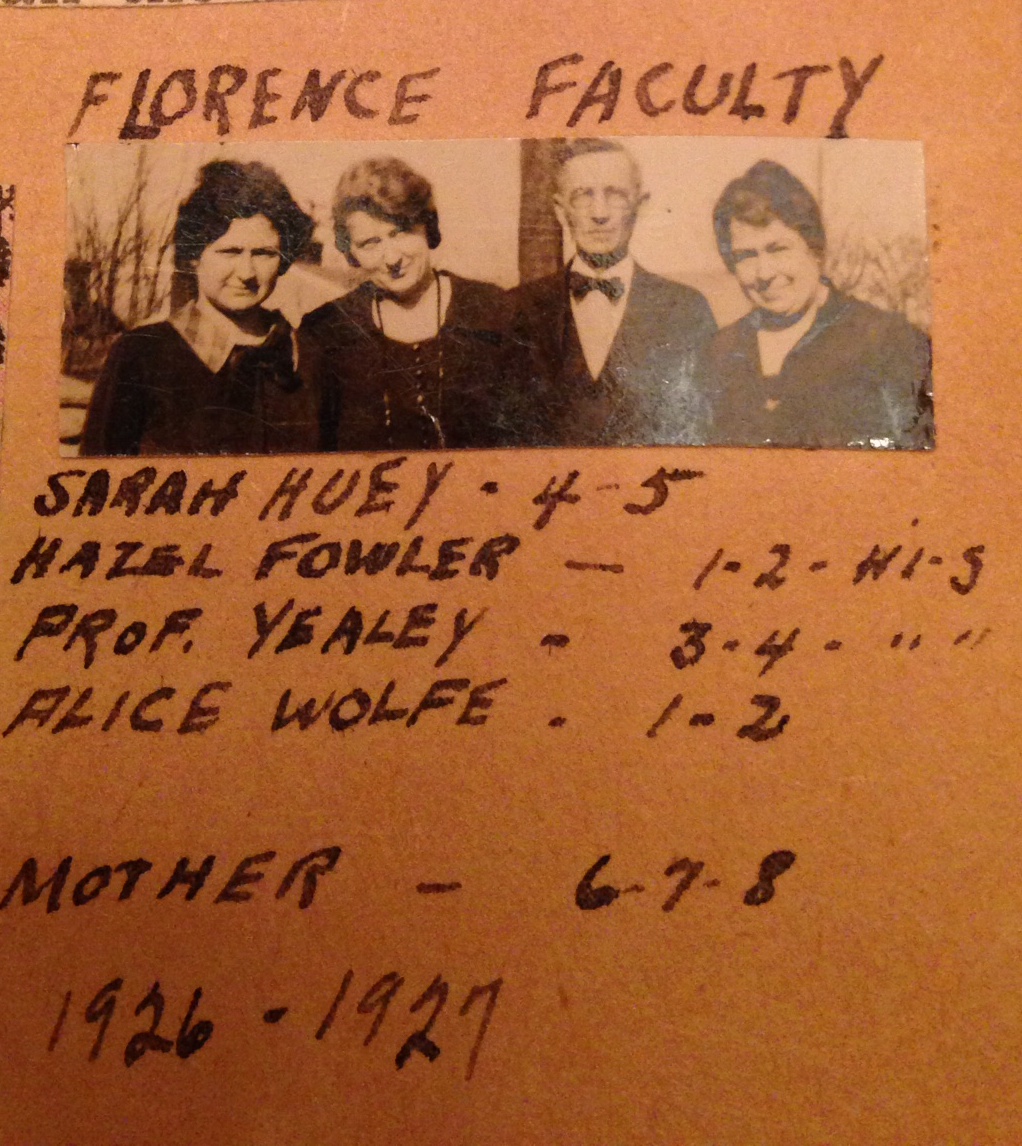 FLORENCE FACULTY
SARAH HUEY - 4-5
HAZEL FOWLER — 1-2- Hi-S
PROF. YEALEY - 3-4- " "
ALICE WOLFE - 1-2
MOTHER — 6-7-8
1926 - 1927